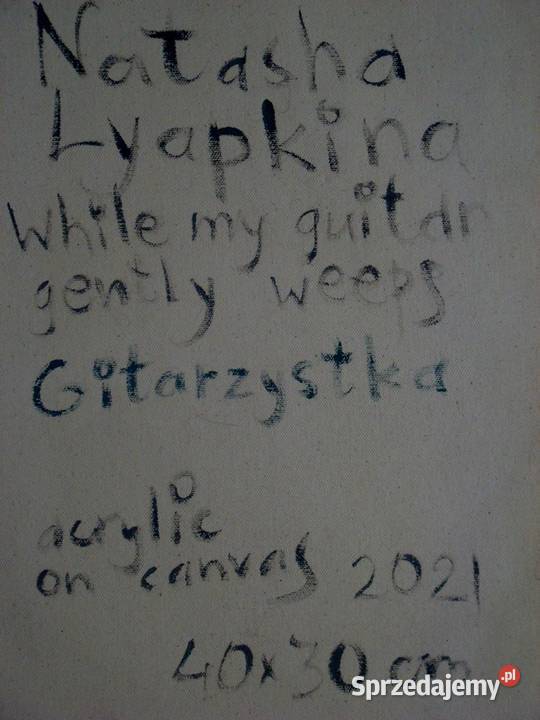 Natasha
Lyapkina
While my guitar
gently weeps
Gitarzystka
acrylic
on canvas 2021
40x30 cm
Sprzedajemy.pl